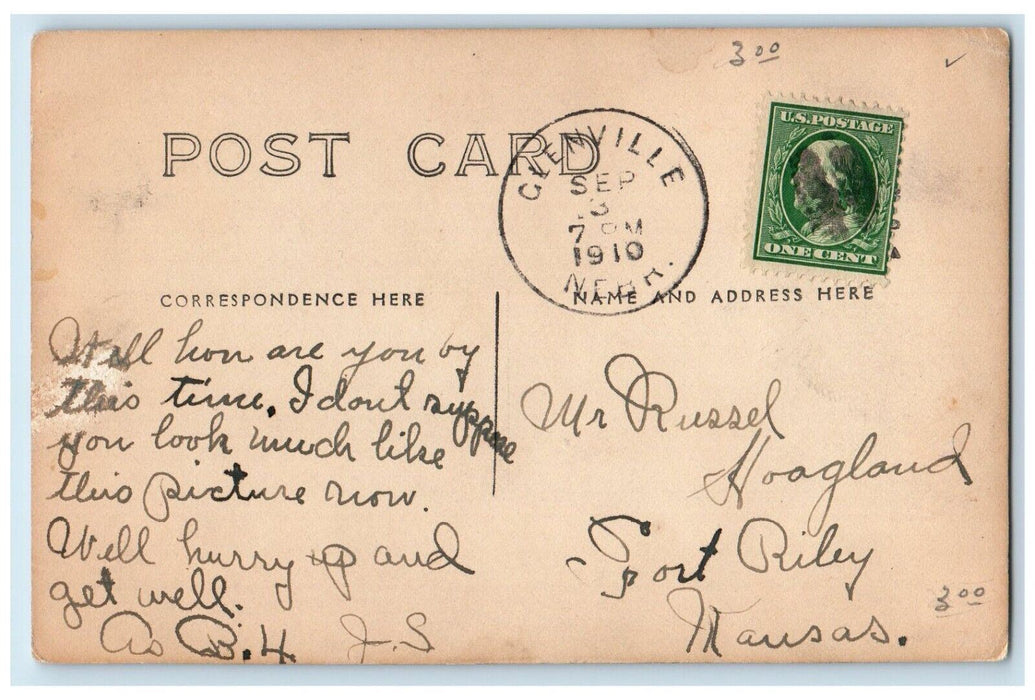 3 00
POST CARD
GLENVILLE
SEP
13
7 PM
1910
NEBR.
U.S. POSTAGE
ONE CENT
CORRESPONDENCE HERE
NAME AND ADDRESS HERE
Well how are you by
this time. I dont suppose
you look much like
this picture now.
Well hurry up and
get well.
As B.H. J-S
Mr Russel
Hoagland
Fort Riley
Kansas.
3 00